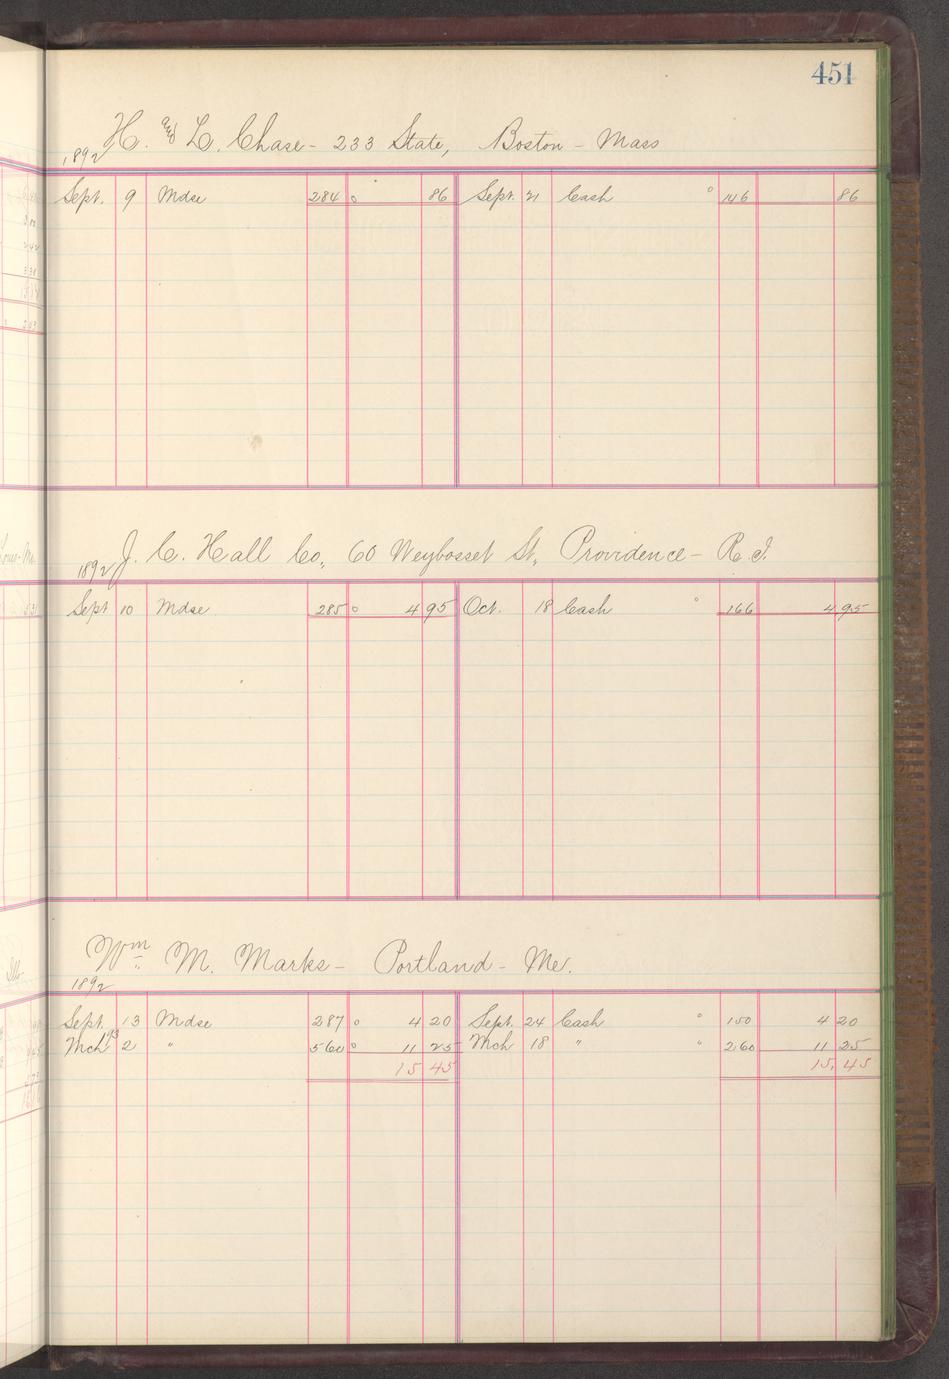 451
H. and L. Chase - 233 State, Boston - Mass
1892
Sept. 9 Mdse 284 86 Sept. 21 Cash 146 86
J. C. Hall Co, 60 Weybosset St, Providence - R.I.
1892
Sept 10 Mdse 285 4 95 Oct. 18 Cash 166 4 95
Wm M. Marks - Portland - Me.
1892
Sept. 13 Mdse 287 4 20 Sept. 24 Cash 150 4 20
Mch 93 2 " 560 11 25 Mch 18 " 260 11 25
15 45 15, 45